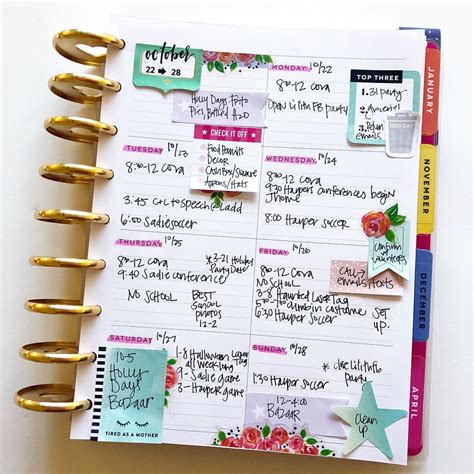 october
22 → 28
Holly Days Photo
MONDAY 10/22
8:30-12 Cora
Open Lilith FB party
TOP THREE
1. 31 party
2. groceries
3. Return emails
TRASH DAY
CHECK IT OFF
Food Peanuts
Decor
Cash Box/Square
Aprons/Hats
TUESDAY 10/23
8:30-12 Cora
3:45 C+L to speech@Ladd
6:00 Sadie soccer
WEDNESDAY 10/24
8:30-12 Cora
9:30 Harpers conferences begin
1 home
8:00 Harper soccer
THURSDAY 10/25
8:30-12 Cora
9:40 Sadie conference
NO SCHOOL
*3-21 Holiday
Party Date
BEST
photos
12-2
FRIDAY 10/26
8:30-12 Cora
NO SCHOOL
3-8 Haunted Laser Tag
5:30 Harper Soccer
SET
UP.
confirm
volunteers
CALL +
emails/texts
SATURDAY 10/27
10-5
Holly
Days
Bazaar
TIRED AS A MOTHER
1-8 Halloween Laser Tag
all week long
9- Sadie game
3- Harper game
SUNDAY 10/28
1:30 Harper Soccer
party
12-4:00
BAZAAR
clean
up
JANUARY
NOVEMBER
DECEMBER
APRIL